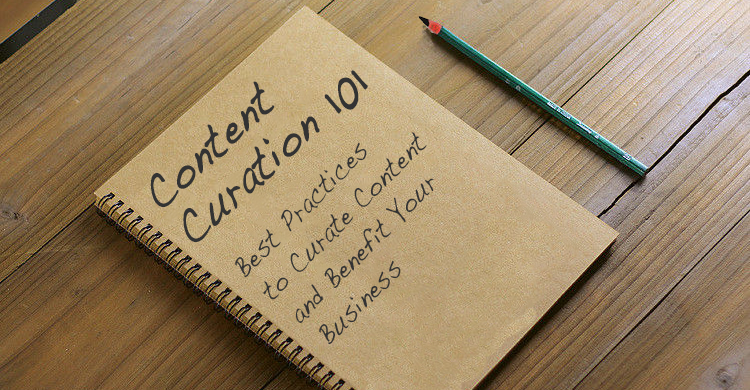 Content
Curation 101
Best Practices
to Curate Content
and Benefit Your
Business